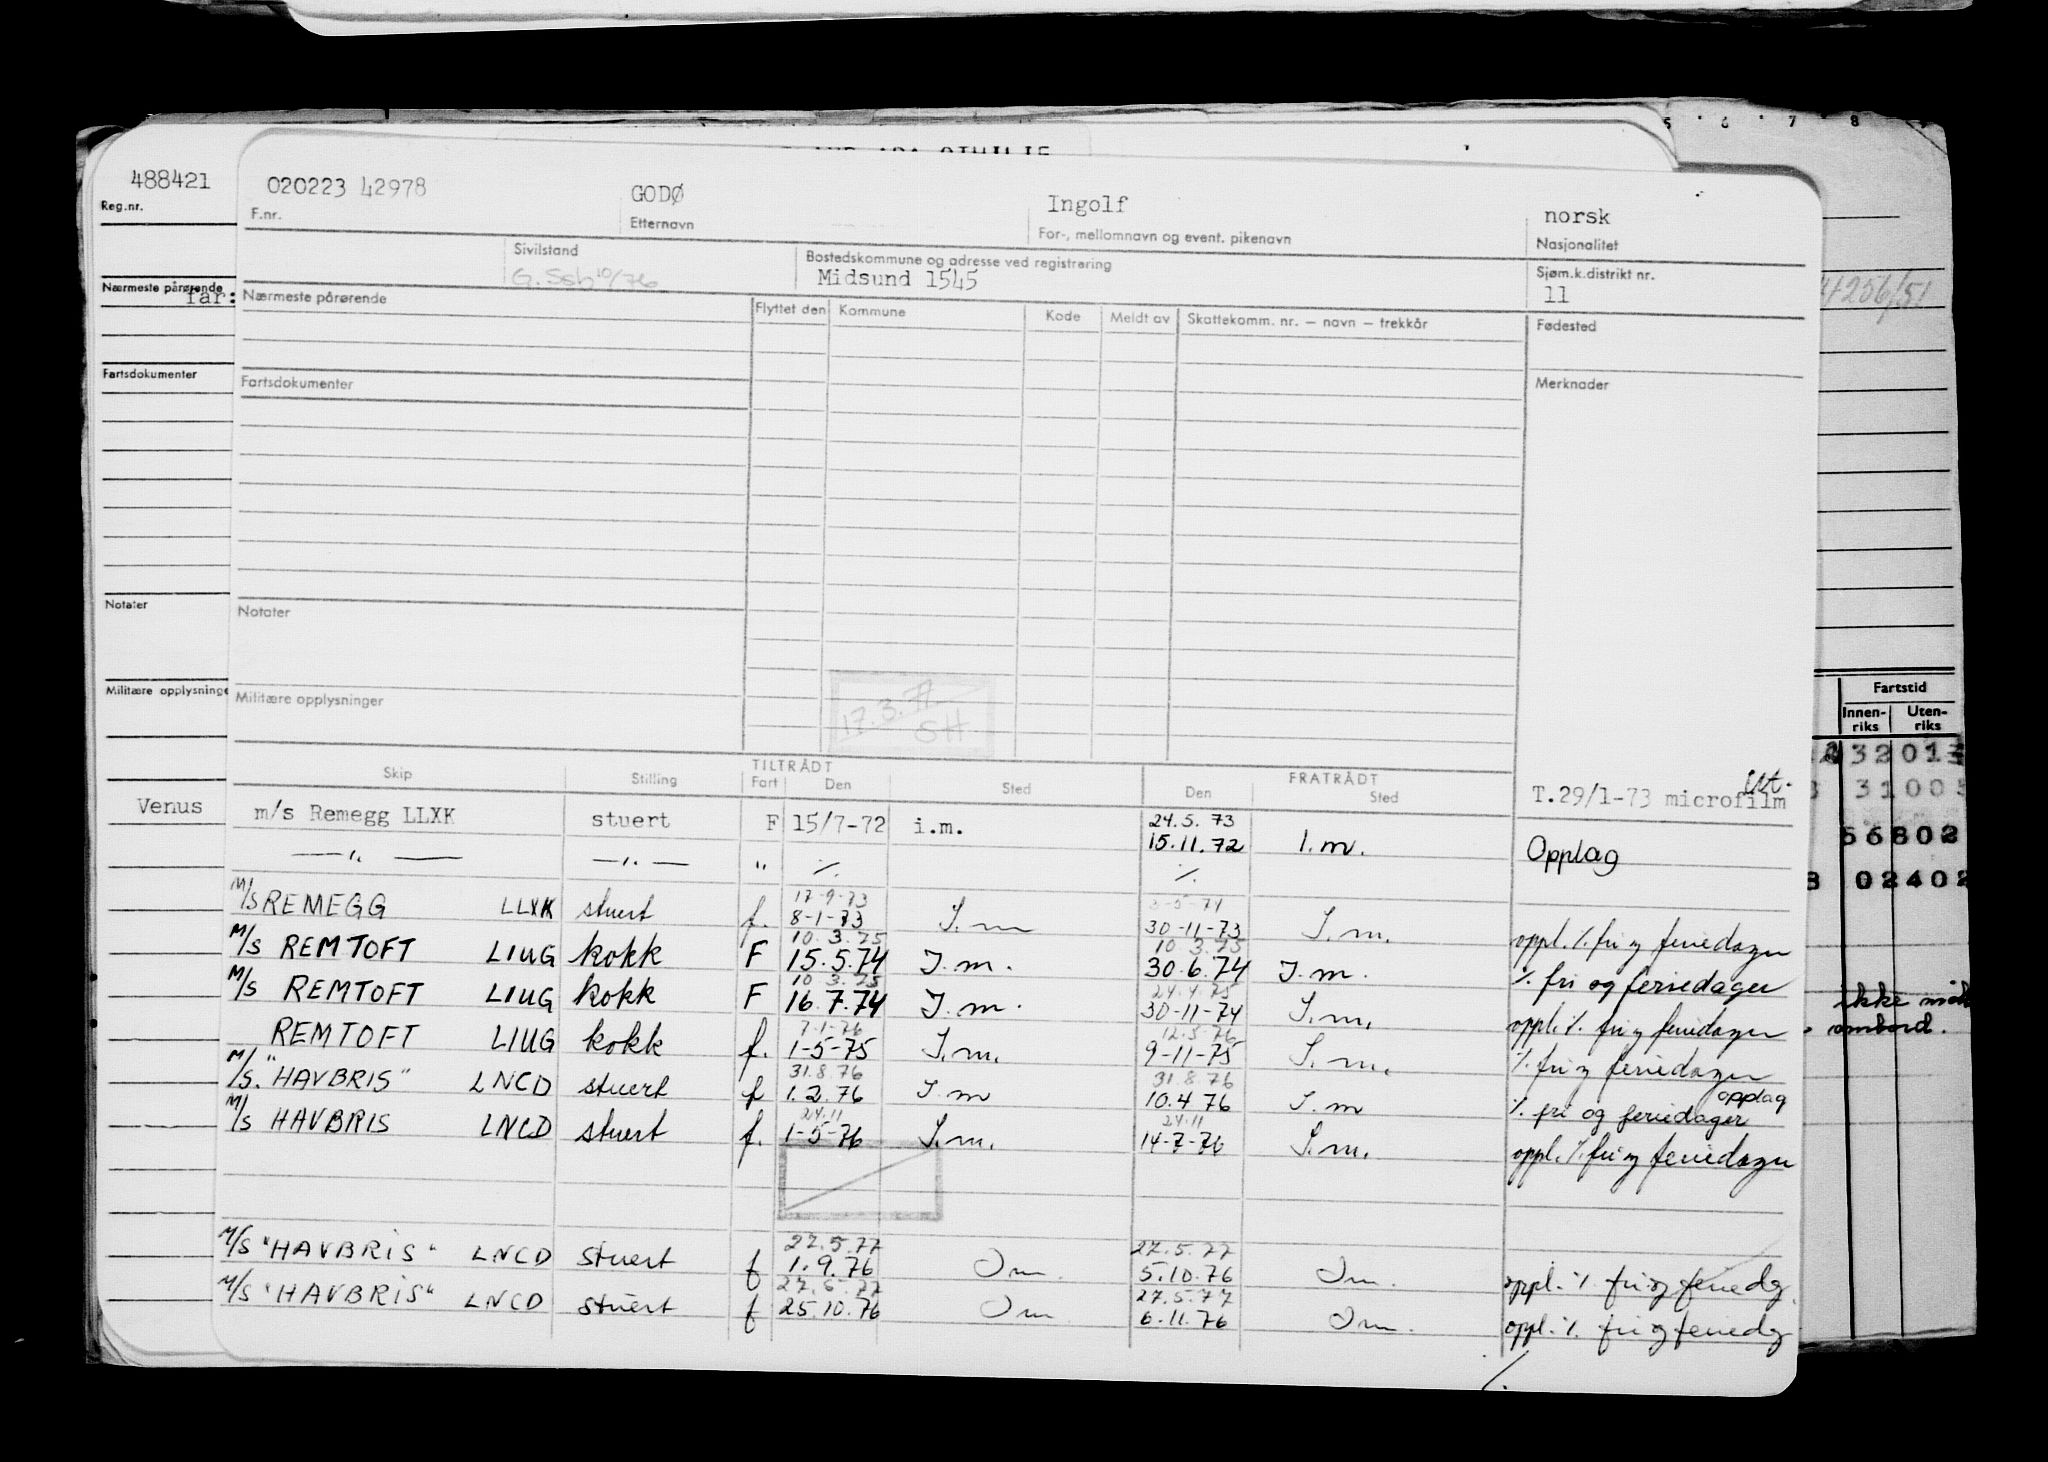 5 6 7 8
488421
Reg.nr.
020223 42978
F.nr.
GODØ
Etternavn
Ingolf
For-, mellomnavn og event. pikenavn
norsk
Nasjonalitet
Sivilstand
G. Ssb 10/76
Bostedskommune og adresse ved registrering
Midsund 1545
Sjøm.k.distrikt nr.
11
4256/51
Nærmeste pårørende
far:
Nærmeste pårørende
Flyttet den Kommune Kode Meldt av Skattekomm. nr. — navn — trekkår
Fødested
Fartsdokumenter
Fartsdokumenter
Merknader
Notater
Notater
Militære opplysninge
Militære opplysninger
17.3.77
SH
Fartstid
Innen-riks Uten-riks
Skip Stilling TILTRÅDT Fart Den Sted FRATRÅDT Den Sted
Venus
m/s Remegg LLXK stuert F 15/7-72 i.m. 24.5.73 15.11.72 I.m. T.29/1-73 microfilm
—"— —"— " ٪ ٪ Opplag
M/S REMEGG LLXK stuert f. 17-9-73 8-1-73 I.m 3-5-74 30-11-73 I.m. oppl. ٪ fri og feriedager
M/S REMTOFT LIUG kokk F 10.3.75 15.5.74 I.m. 10.3.75 30.6.74 I.m. ٪ fri og feriedager
M/S REMTOFT LIUG kokk F 10.3.75 16.7.74 I.m. 24.4.75 30-11-74 I.m. oppl. ٪ fri og feriedager
ikke
ombord.
REMTOFT LIUG kokk f. 7-1-76 1-5-75 I.m. 12.5.76 9-11-75 I.m. ٪ fri og feriedager
M/S. "HAVBRIS" LNCD stuert f 31.8.76 1.2.76 I.m 31.8.76 10.4 76 I.m ٪ fri og feriedager opplag
M/S HAVBRIS LNCD stuert f. 24.11 1-5-76 I.m. 24.11 14-7-76 I.m. oppl. ٪ fri og feriedager
M/S "HAVBRIS" LNCD stuert f 27.5.77 1.9.76 Im. 27.5.77 5.10.76 Im. oppl. ٪ fri og feriedg.
M/S "HAVBRIS" LNCD stuert f 27.5.77 25.10.76 Im 27.5.77 6.11.76 Im. oppl. ٪ fri og feriedg